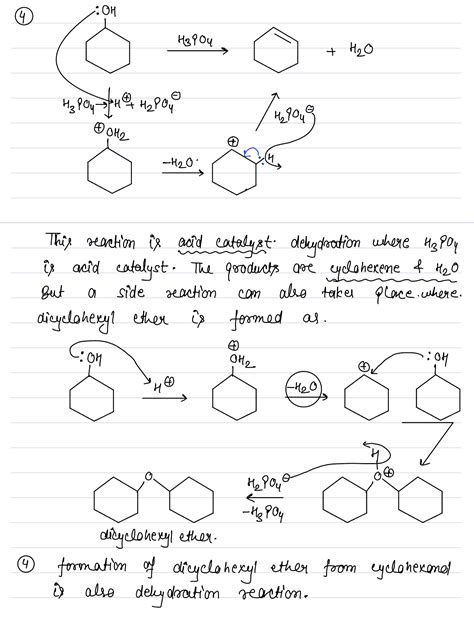 ④ :OH
H3PO4
+ H2O
H3PO4 → H⊕ + H2PO4⊖
⊕OH2
-H2O.
⊕
:H
H2PO4⊖
This reaction is acid catalyst. dehydration where H3PO4
is acid catalyst. The products are cyclohexene & H2O
But a side reaction can also takes place. where.
dicyclohexyl ether is formed as.
:OH
H⊕
⊕
OH2
-H2O
⊕
:OH
O
H2PO4⊖
-H3PO4
H
O⊕
dicyclohexyl ether.
④ formation of dicyclohexyl ether from cyclohexanol
is also dehydration reaction.